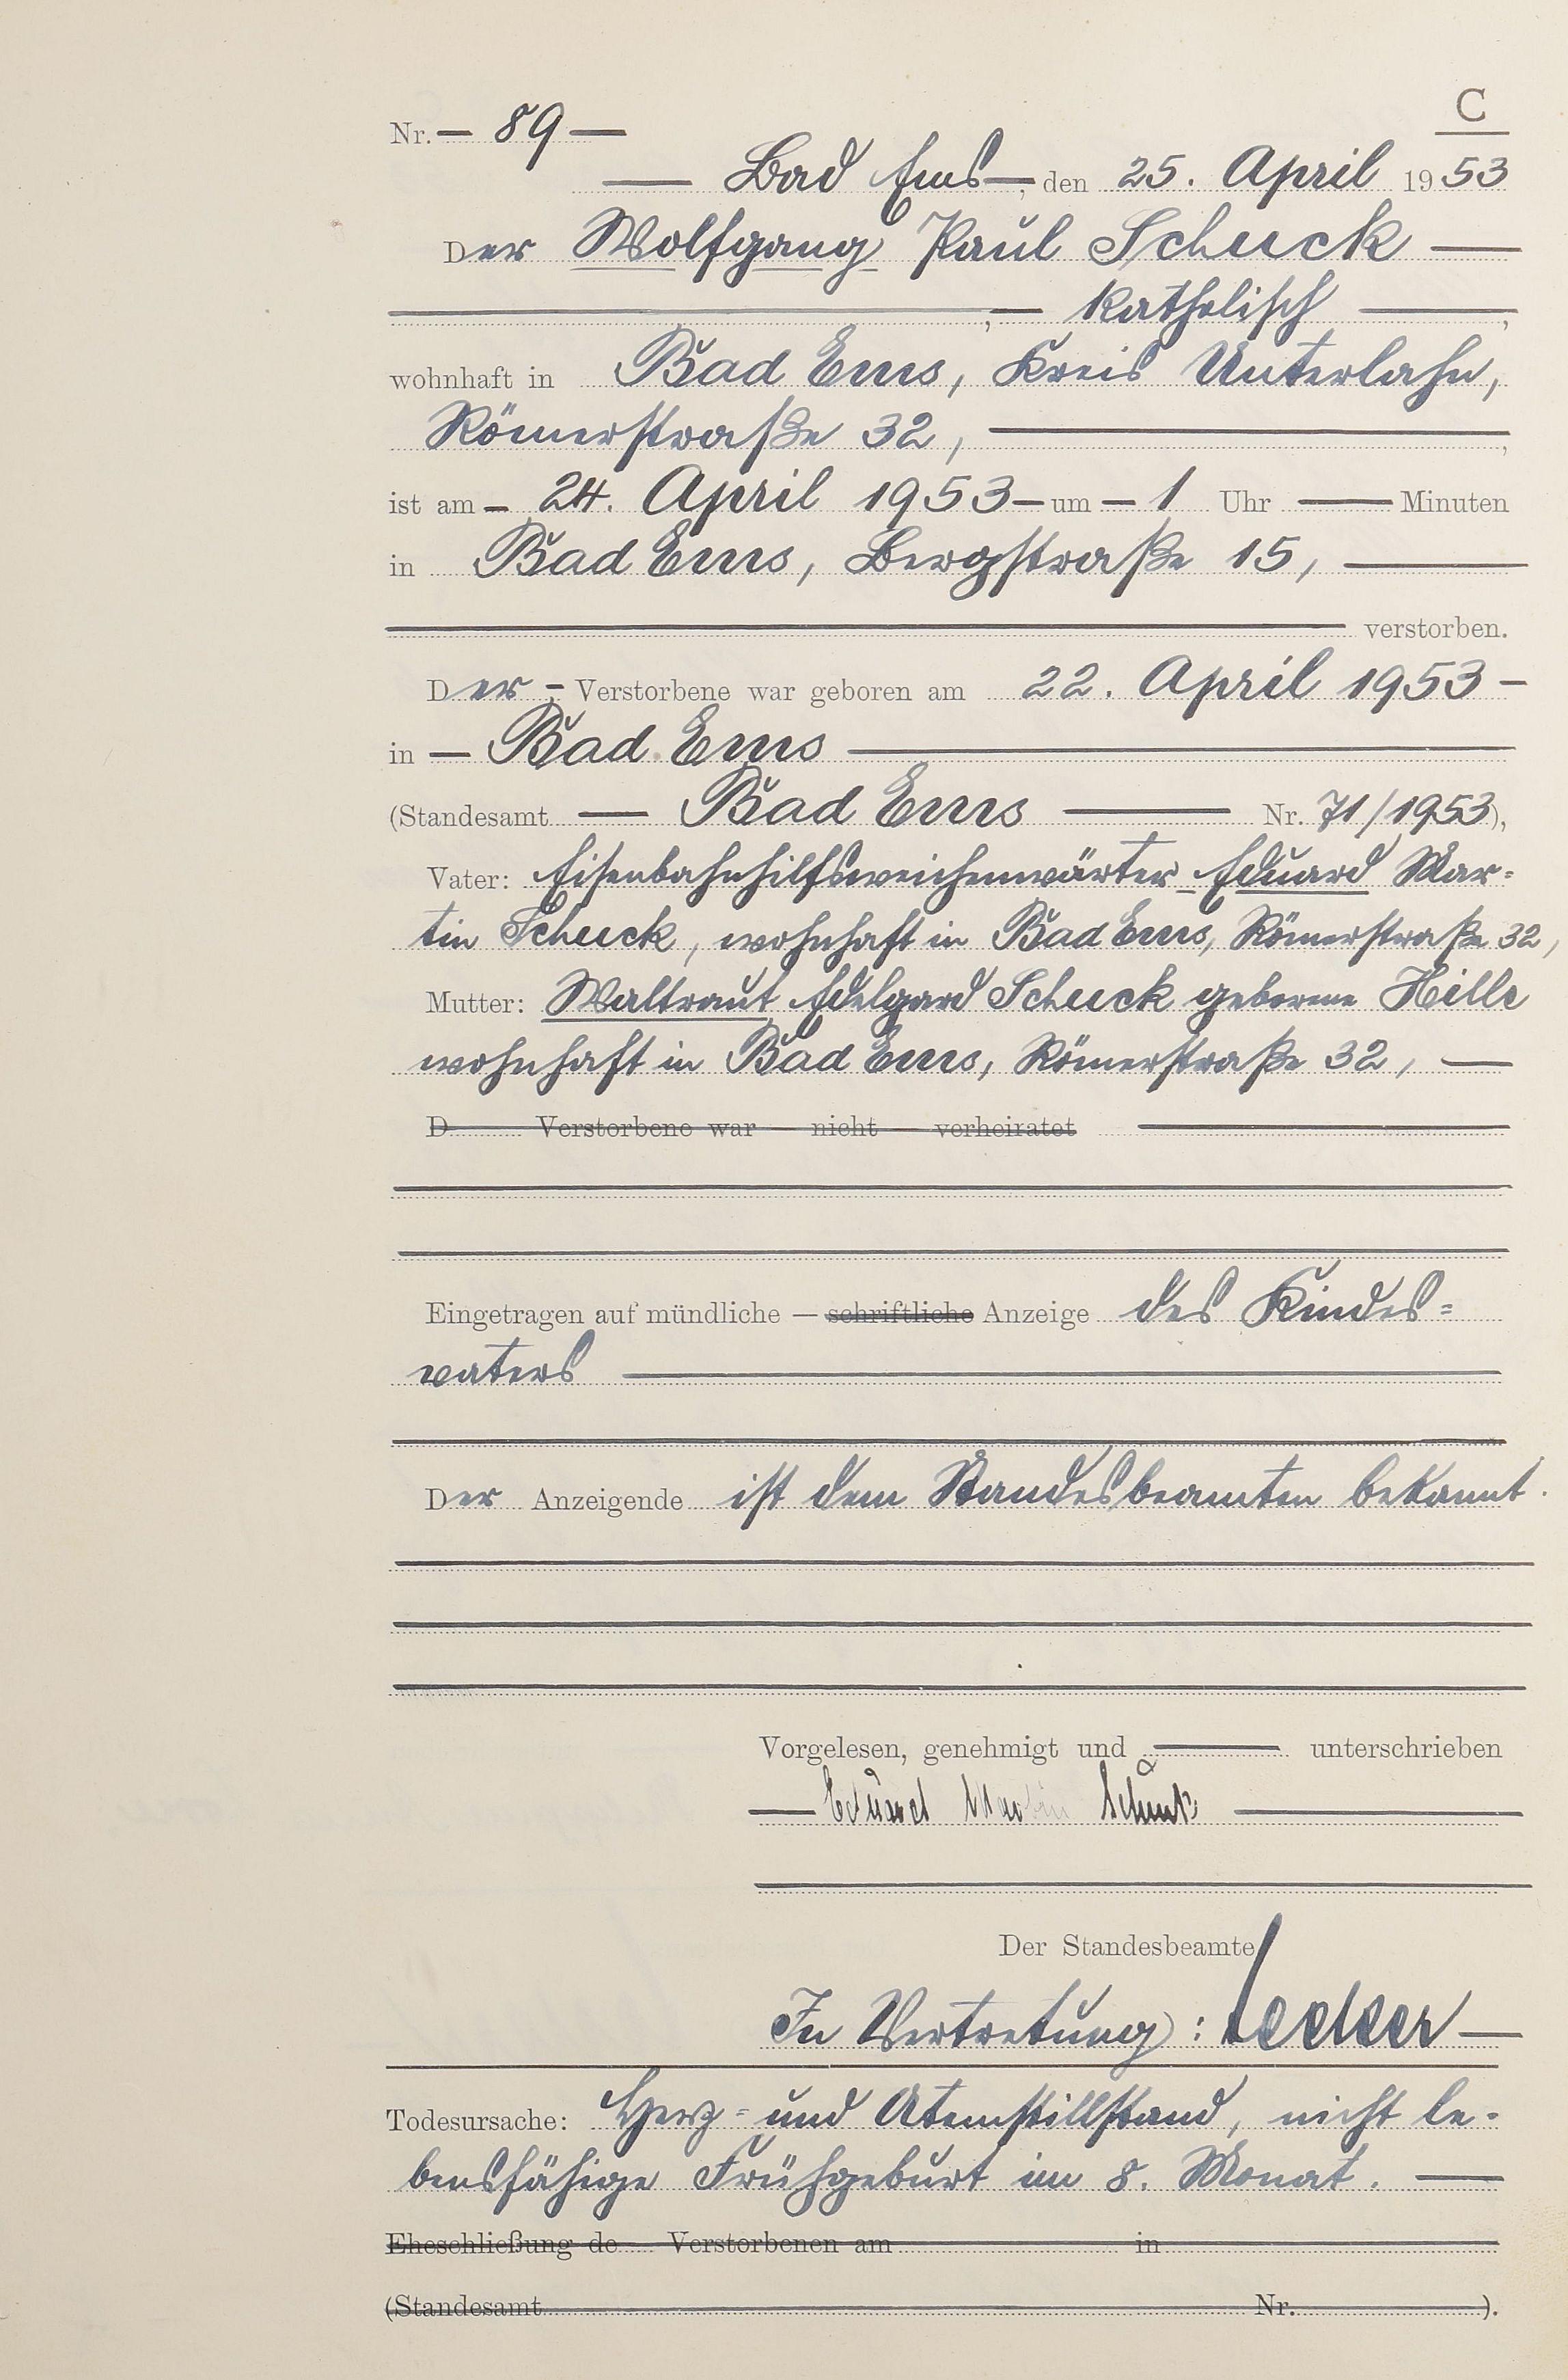 C
Nr. — 89 —
— Bad Ems —, den 25. April 1953
Der Wolfgang Paul Schuck —
—, — katholisch —,
wohnhaft in Bad Ems, Kreis Unterlahn,
Römerstraße 32, —,
ist am — 24. April 1953 — um — 1 Uhr — Minuten
in Bad Ems, Bergstraße 15, —
— verstorben.
Der — Verstorbene war geboren am 22. April 1953 —
in — Bad Ems —
(Standesamt — Bad Ems — Nr. 71/1953),
Vater: Eisenbahnhilfsweichenwärter Eduard Mar-
tin Schuck, wohnhaft in Bad Ems, Römerstraße 32,
Mutter: Waltraut Edelgard Schuck geborene Hille
wohnhaft in Bad Ems, Römerstraße 32, —
D Verstorbene war — nicht — verheiratet —
Eingetragen auf mündliche — schriftliche Anzeige des Kindes-
vaters —
Der Anzeigende ist dem Standesbeamten bekannt.
Vorgelesen, genehmigt und — unterschrieben
— Eduard Martin Schuck —
Der Standesbeamte
In Vertretung:
Todesursache: Herz- und Atemstillstand, nicht le-
bensfähige Frühgeburt im 8. Monat. —
Eheschließung de Verstorbenen am in
(Standesamt Nr. ).